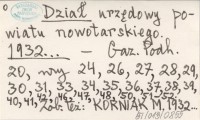 Dział urzędowy po-
wiatu nowotarskiego.
1932... — Gaz. Podh.
20, nry 24, 26, 27, 28, 29,
30, 31, 33, 34, 35, 36, 37, 38, 39,
40, 41, 42, 46, 47, 48, 50, 51, 52
Zob. też: KORNIAK M. 1932...